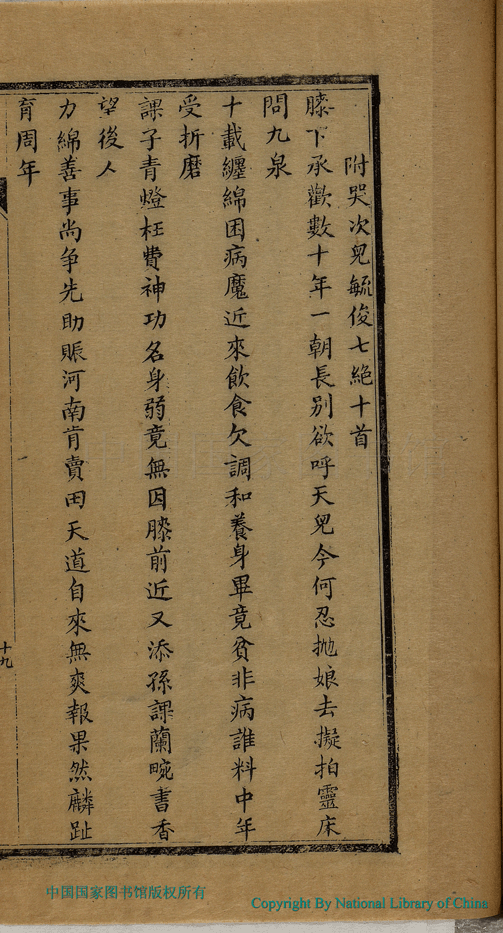 附哭次兒毓俊七絕十首
膝下承歡數十年一朝長別欲呼天兒今何忍拋娘去擬拍靈床
問九泉
十載纏綿困病魔近來飲食欠調和養身畢竟貧非病誰料中年
受折磨
課子青燈枉費神功名身弱竟無因膝前近又添孫課蘭畹書香
望後人
力綿善事尚爭先助賑河南肯賣田天道自來無爽報果然麟趾
育周年
十九
中国国家图书馆版权所有
Copyright By National Library of China